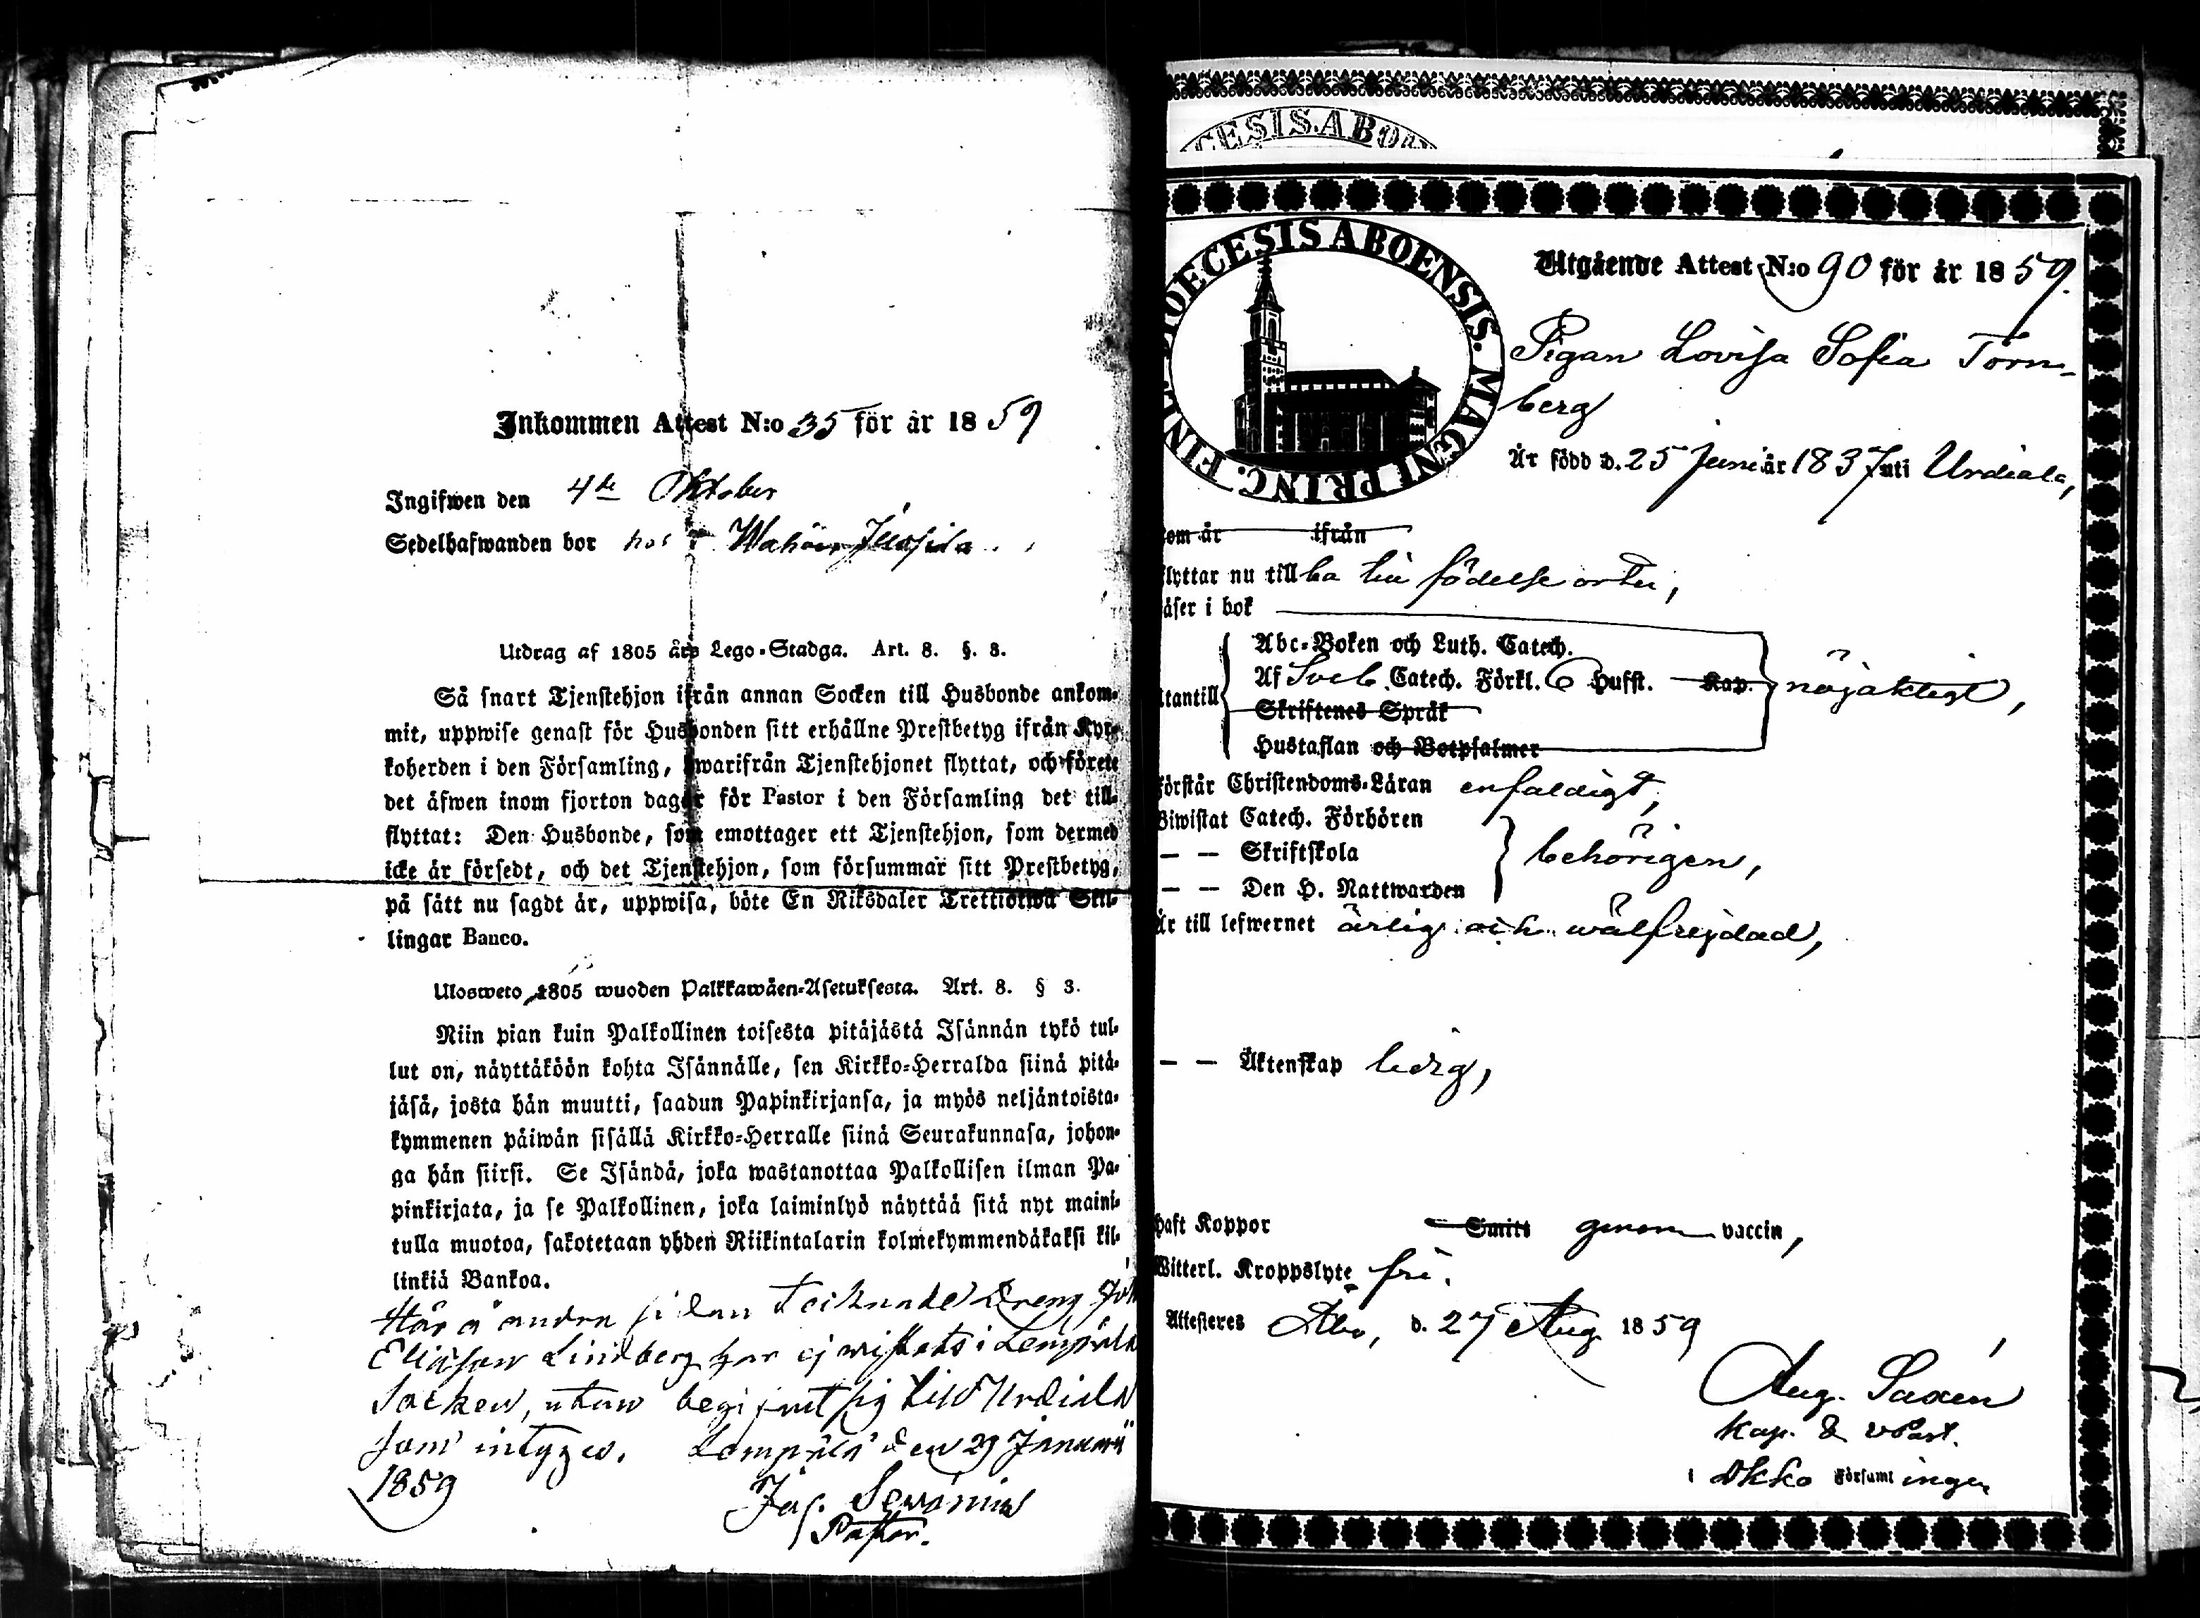 Inkommen Attest N:o 35 för år 1859
Ingifwen den 4de Oktober
Sedelhafwanden bor hos
Utdrag af 1805 års Lego-Stadga. Art. 8. §. 3.
Så snart Tjenstehjon ifrån annan Socken till Husbonde ankom-
mit, uppwise genast för Husbonden sitt erhållne Prestbetyg ifrån Kyr-
koherden i den Församling, hwarifrån Tjenstehjonet flyttat, och förete
det äfwen inom fjorton dagar för Pastor i den Församling det till-
flyttat: Den Husbonde, som emottager ett Tjenstehjon, som dermed
icke är försedt, och det Tjenstehjon, som försummar sitt Prestbetyg,
på sätt nu sagdt är, uppwisa, böte En Riksdaler Trettiotwå Skil-
lingar Banco.
Ulosweto 1805 wuoden Palkkawäen-Asetuksesta. Art. 8. § 3.
Niin pian kuin Palkollinen toisesta pitäjästä Isännän tykö tul-
lut on, näyttäköön kohta Isännälle, sen Kirkko-Herralda siinä pitä-
jäsä, josta hän muutti, saadun Papinkirjansa, ja myös neljäntoista-
kymmenen päiwän sisällä Kirkko-Herralle siinä Seurakunnasa, johon-
ga hän siirsi. Se Isändä, joka wastanottaa Palkollisen ilman Pa-
pinkirjata, ja se Palkollinen, joka laiminlyö näyttää sitä nyt maini-
tulla muotoa, sakotetaan yhden Riikintalarin kolmekymmendäkaksi kil-
linkiä Bankoa.
Här å andra sidan tecknade Dreng Joh
Eliasson Lindberg har ej wistats i Lempälä
Socken, utan begifwit sig till Urdiala
som intygas. Lempälä den 29 Januarii
1859
Pastor.
DIOECESIS ABOENSIS. MAGNI PRINC. FINL.
CESIS. ABO
Utgående Attest N:o 90 för år 1859.
Pigan Lovisa Sofia Törn-
berg
Är född d. 25 Juni år 1837 uti Urdiala,
om är ifrån
flyttar nu tillba till födelse orten,
äser i bok
Abc-Boken och Luth. Catech.
Af Sveb. Catech. Förkl. 6 Hufst. Kap.
tantill Skriftenes Språk nöjaktigt,
Hustaflan och Botpsalmer
Förstår Christendoms-Läran enfaldigt,
Biwistat Catech. Förhören
— — Skriftskola behörigen,
— — Den H. Nattwarden
Är till lefwernet ärlig och wälfrejdad,
— — Äktenskap ledig,
haft Koppor Smitt genom vaccin,
Witterl. Kroppslyte fri.
Attesteres Åbo, d. 27 Aug. 1859
Aug. Saxén
Kap. & vPast.
i Församlingen